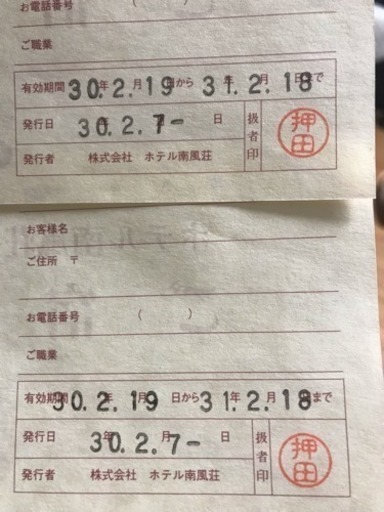 お電話番号 ( )
ご職業
有効期間 30年2.月19日から 31年2.月18日まで
発行日 30.2.7- 日 扱者印 押田
発行者 株式会社 ホテル南風荘
お客様名
ご住所 〒
お電話番号 ( )
ご職業
有効期間 30.年2.月19 日から 31年2.月18日まで
発行日 30年2.月7- 日 扱者印 押田
発行者 株式会社 ホテル南風荘